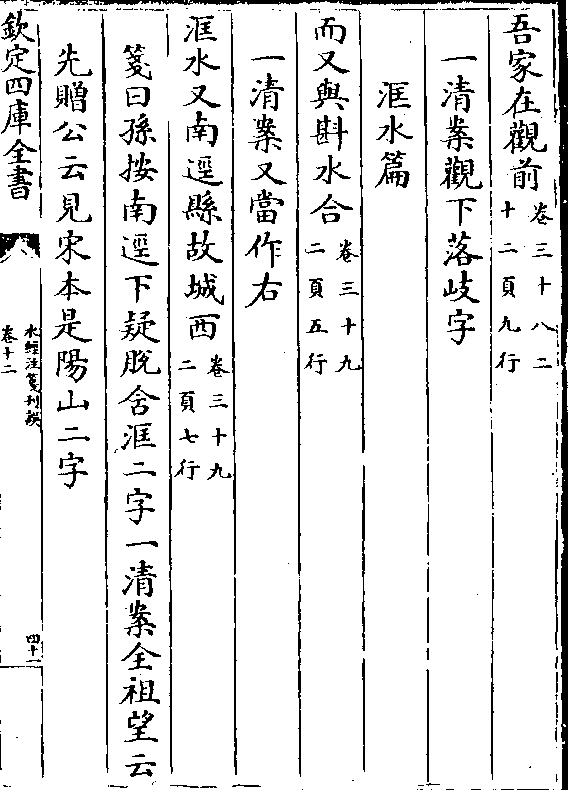 吾家在觀前卷三十八二十二頁九行
一清案觀下落岐字
洭水篇
而又與斟水合卷三十九二頁五行
一清案又當作右
洭水又南逕縣故城西卷三十九二頁七行
箋曰孫按南逕下疑脫含洭二字一清案全祖望云
先贈公云見宋本是陽山二字
欽定四庫全書
水經注箋刊誤
卷十二
四十一